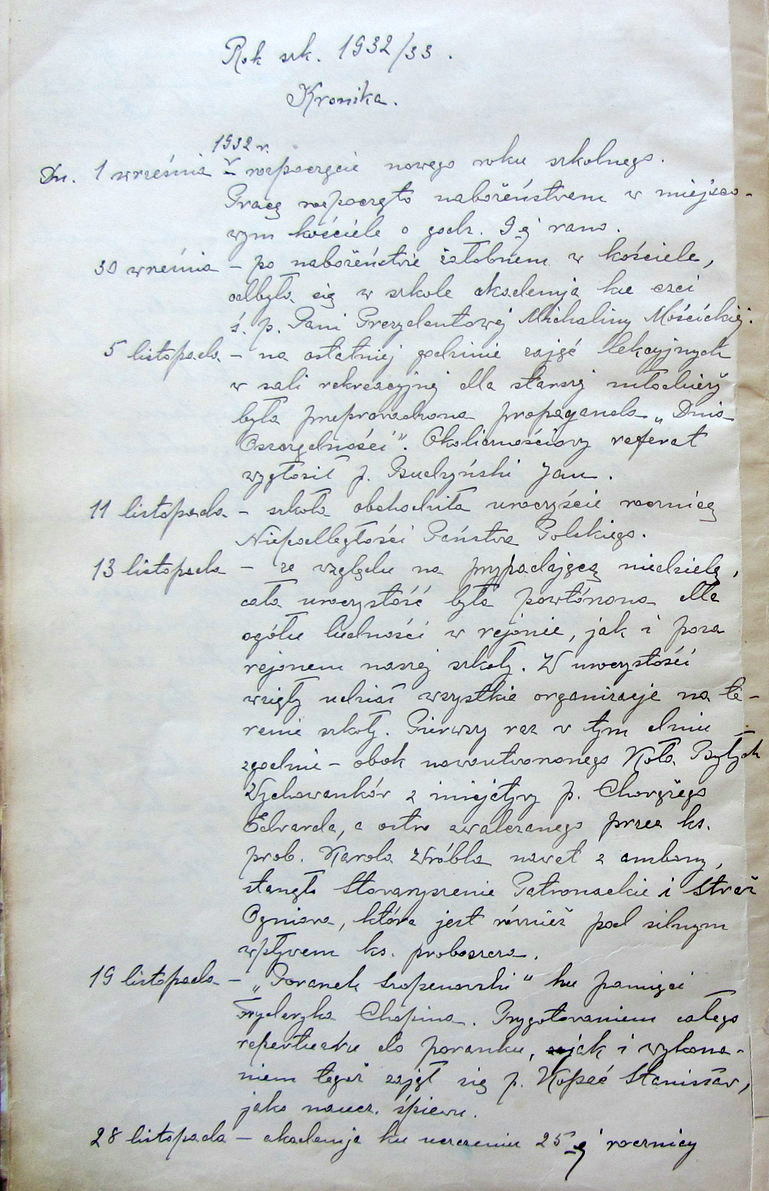 Rok szk. 1932/33.
Kronika.
1932 r.
Dn. 1 września – rozpoczęcie nowego roku szkolnego.
Pracę rozpoczęto nabożeństwem w miejsco-
wym kościele o godz. 9ej rano.
30 wreśnia – po nabożeństwie żałobnem w kościele,
odbyła się w szkole akademja ku czci
ś. p. Pani Prezydentowej Michaliny Mościckiej.
5 listopada – na ostatniej godzinie zajęć lekcyjnych
w sali rekreacyjnej dla starszej młodzieży
była przeprowadzona propaganda „Dnia
Oszczędności". Okolicznościowy referat
wygłosił p. Buczyński Jan.
11 listopada – szkoła obchodziła uroczyście rocznicę
Niepodległości Państwa Polskiego.
13 listopada – ze względu na przypadającą niedzielę,
cała uroczystość była powtórzona dla
ogółu ludności w rejonie, jak i poza
rejonem naszej szkoły. W uroczystości
wzięły udział wszystkie organizacje na te-
renie szkoły. Pierwszy raz w tym dniu
zgodnie – obok nowoutworzonego Koła Byłych
Wychowanków z inicjatywy p.
Edwarda, a ostro zwalczanego przez ks.
prob. Karola Wróbla nawet z ambony,
stanęło Stowarzyszenie Patronackie i Straż
Ogniowa, która jest również pod silnym
wpływem ks. proboszcza.
19 listopada – „Poranek Szopenowski" ku pamięci
Fryderyka Chopina. Przygotowaniem całego
repertuaru do poranku, jak i wykona-
niem tegoż zajął się p. Kopeć Stanisław,
jako naucz. śpiewu.
28 listopada – akademja ku uczczeniu 25-ej rocznicy